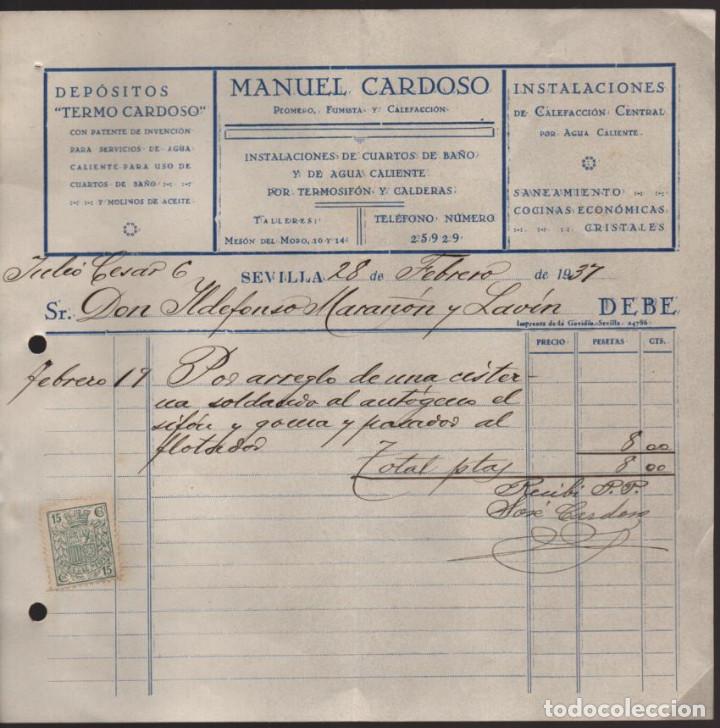 DEPÓSITOS
"TERMO CARDOSO"
CON PATENTE DE INVENCIÓN
PARA SERVICIOS DE AGUA
CALIENTE PARA USO DE
CUARTOS DE BAÑO
Y MOLINOS DE ACEITE
MANUEL CARDOSO
PLOMERO, FUMISTA Y CALEFACCIÓN
INSTALACIONES DE CUARTOS DE BAÑO
Y DE AGUA CALIENTE
POR TERMOSIFÓN Y CALDERAS
TALLERES: TELÉFONO NÚMERO
MESÓN DEL MORO, 10 Y 14 25929
INSTALACIONES
DE CALEFACCIÓN CENTRAL
POR AGUA CALIENTE
SANEAMIENTO
COCINAS ECONÓMICAS
CRISTALES
Julio Cesar 6 SEVILLA 28 de Febrero de 1937
Sr. Don Ildefonso Marañón y Lavín DEBE
Imprenta de la Gavidia.-Sevilla 24786
PRECIO PESETAS CTS.
febrero 19 Por arreglo de una cister-
na soldando al autógeno el
sifón y goma y pasador al
flotador 8 00
Total ptas 8 00
Recibí P.P.
José Cardoso
15 C
C 15
todocoleccion